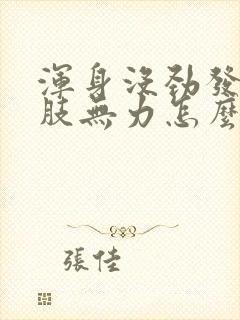 渾身沒勁發
肢無力怎麼
張佳